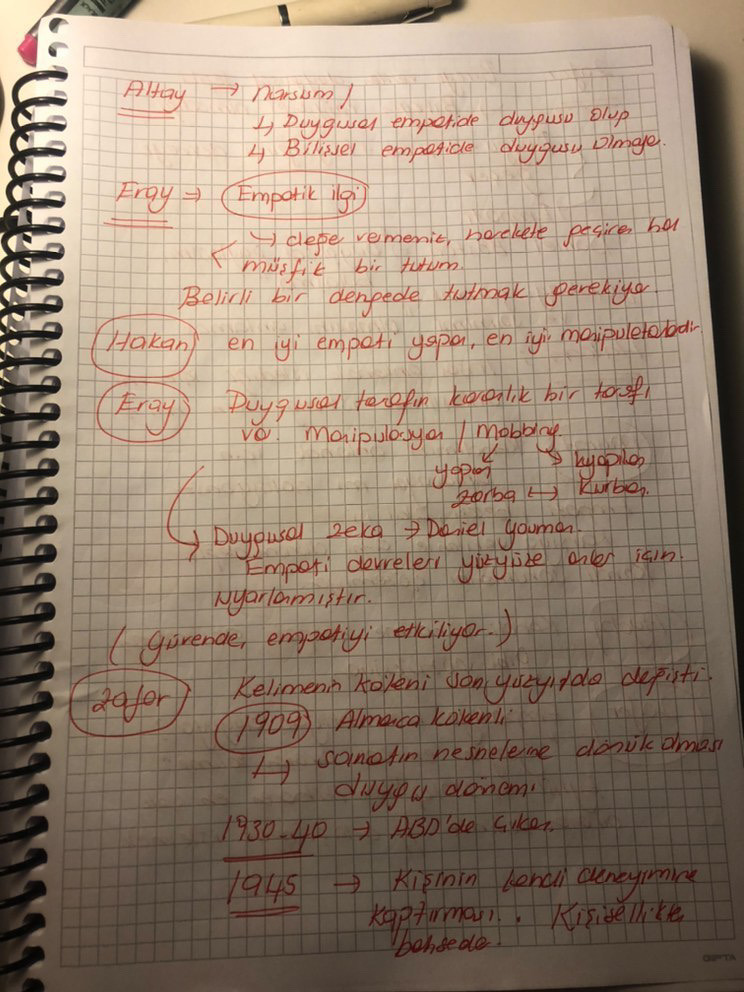 Altay → narsizm /
↳ Duygusal empatide duygusu olup
↳ Bilişsel empatide duygusu olmaya.
Eray → Empatik ilgi
↳ değe vermenin, harekete geçiren hal
müşfik bir tutum.
Belirli bir dengede tutmak gerekiyor.
Hakan en iyi empati yapan, en iyi manipüle
Eray Duygusal tarafın karanlık bir tarafı
var. Manipülasyon / Mobbing.
yapan yapılan
zorba ↔ Kurban.
Duygusal zeka → Daniel
Empati devreleri yüzyüze anlar için.
uyarlamıştır.
(Güvende, empatiyi etkiliyor.)
Zafer Kelimenin kökeni son yüzyılda değişti.
1909 Almanca kökenli
↳ sanatın nesnelerine dönük olması
duygu dönemi
1930-40 → ABD'de çıkar.
1945 → Kişinin kendi deneyimine
kaptırması. Kişisellikte
bahseder.
GIPTA